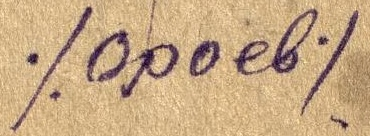 ·/.Ороев·/.